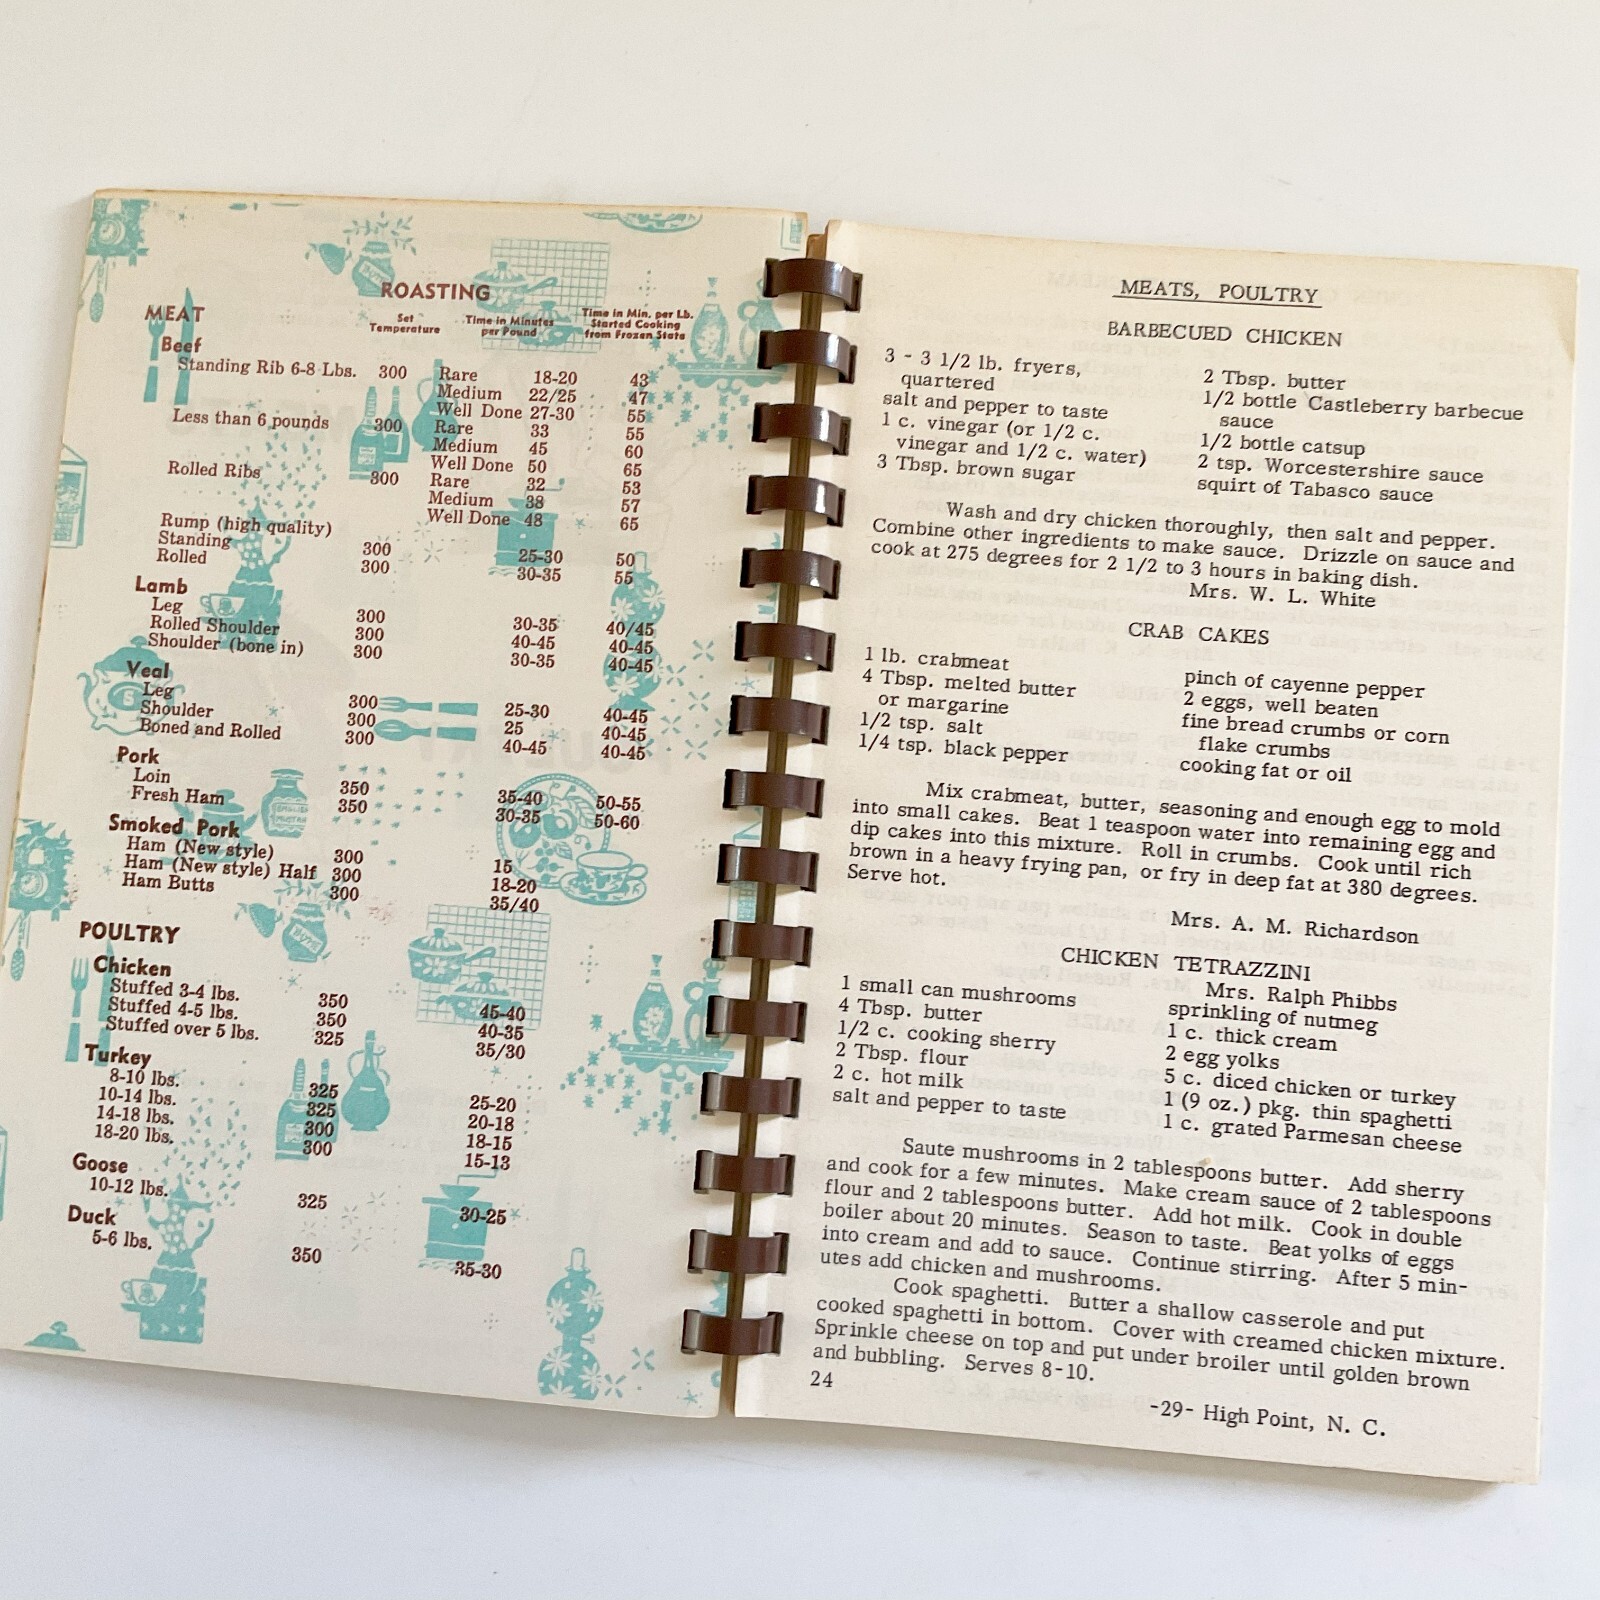 ROASTING
MEAT
Set Temperature
Time in Minutes per Pound
Time in Min. per Lb. Started Cooking from Frozen State
Beef
Standing Rib 6-8 Lbs. 300 Rare 18-20 43
Medium 22/25 47
Well Done 27-30 55
Less than 6 pounds 300 Rare 33 55
Medium 45 60
Well Done 50 65
Rolled Ribs 300 Rare 32 53
Medium 38 57
Well Done 48 65
Rump (high quality)
Standing 300 25-30 50
Rolled 300 30-35 55
Lamb
Leg 300 30-35 40/45
Rolled Shoulder 300 40-45 40-45
Shoulder (bone in) 300 30-35 40-45
Veal
Leg 300 25-30 40-45
Shoulder 300 25 40-45
Boned and Rolled 300 40-45 40-45
Pork
Loin 350 35-40 50-55
Fresh Ham 350 30-35 50-60
Smoked Pork
Ham (New style) 300 15
Ham (New style) Half 300 18-20
Ham Butts 300 35/40
POULTRY
Chicken
Stuffed 3-4 lbs. 350 45-40
Stuffed 4-5 lbs. 350 40-35
Stuffed over 5 lbs. 325 35/30
Turkey
8-10 lbs. 325 25-20
10-14 lbs. 325 20-18
14-18 lbs. 300 18-15
18-20 lbs. 300 15-13
Goose
10-12 lbs. 325 30-25
Duck
5-6 lbs. 350 35-30
MEATS, POULTRY
BARBECUED CHICKEN
3 - 3 1/2 lb. fryers,
quartered
salt and pepper to taste
1 c. vinegar (or 1/2 c.
vinegar and 1/2 c. water)
3 Tbsp. brown sugar
2 Tbsp. butter
1/2 bottle Castleberry barbecue
sauce
1/2 bottle catsup
2 tsp. Worcestershire sauce
squirt of Tabasco sauce
Wash and dry chicken thoroughly, then salt and pepper.
Combine other ingredients to make sauce. Drizzle on sauce and
cook at 275 degrees for 2 1/2 to 3 hours in baking dish.
Mrs. W. L. White
CRAB CAKES
1 lb. crabmeat
4 Tbsp. melted butter
or margarine
1/2 tsp. salt
1/4 tsp. black pepper
pinch of cayenne pepper
2 eggs, well beaten
fine bread crumbs or corn
flake crumbs
cooking fat or oil
Mix crabmeat, butter, seasoning and enough egg to mold
into small cakes. Beat 1 teaspoon water into remaining egg and
dip cakes into this mixture. Roll in crumbs. Cook until rich
brown in a heavy frying pan, or fry in deep fat at 380 degrees.
Serve hot.
Mrs. A. M. Richardson
CHICKEN TETRAZZINI
Mrs. Ralph Phibbs
1 small can mushrooms
4 Tbsp. butter
1/2 c. cooking sherry
2 Tbsp. flour
2 c. hot milk
salt and pepper to taste
sprinkling of nutmeg
1 c. thick cream
2 egg yolks
5 c. diced chicken or turkey
1 (9 oz.) pkg. thin spaghetti
1 c. grated Parmesan cheese
Saute mushrooms in 2 tablespoons butter. Add sherry
and cook for a few minutes. Make cream sauce of 2 tablespoons
flour and 2 tablespoons butter. Add hot milk. Cook in double
boiler about 20 minutes. Season to taste. Beat yolks of eggs
into cream and add to sauce. Continue stirring. After 5 min-
utes add chicken and mushrooms.
Cook spaghetti. Butter a shallow casserole and put
cooked spaghetti in bottom. Cover with creamed chicken mixture.
Sprinkle cheese on top and put under broiler until golden brown
and bubbling. Serves 8-10.
24
-29- High Point, N. C.